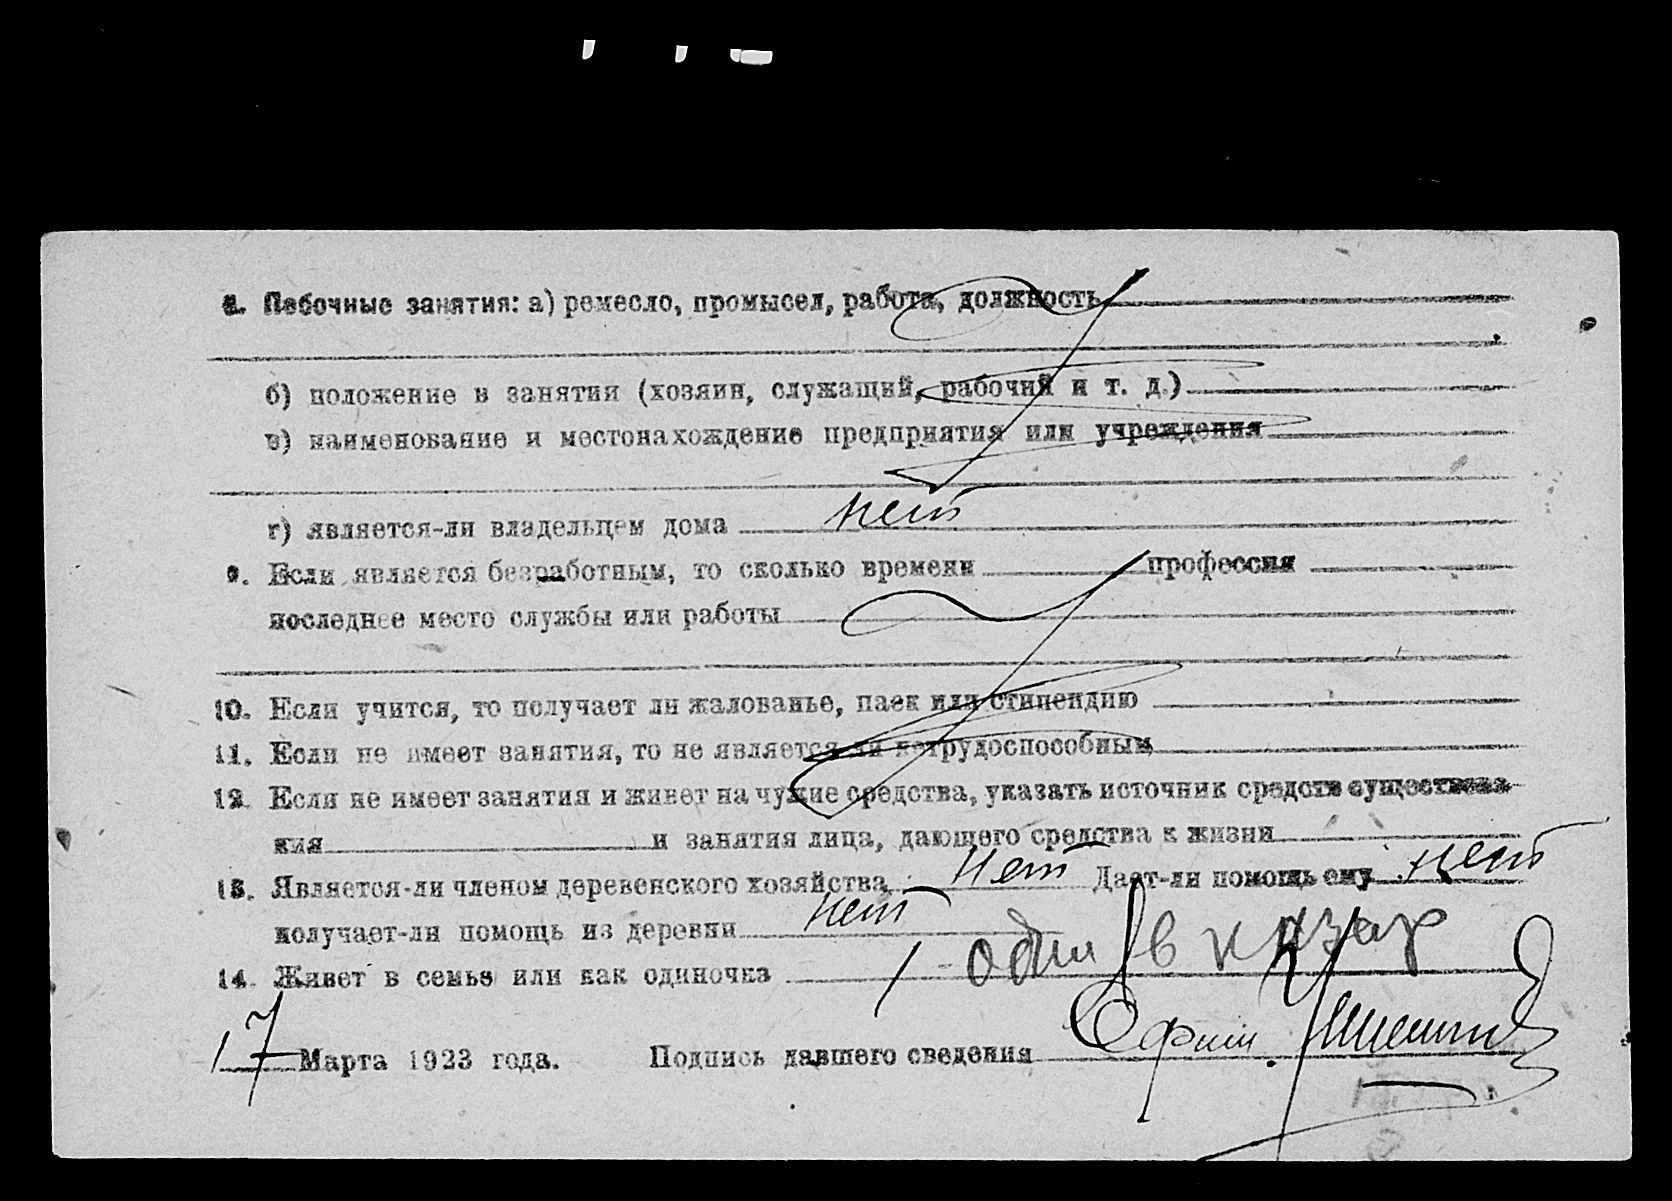 8. Побочные занятия: а) ремесло, промысел, работа, должность
б) положение в занятии (хозяин, служащий, рабочий и т. д.)
в) наименование и местонахождение предприятия или учреждения
г) является-ли владельцем дома нет
9. Если является безработным, то сколько времени профессия
последнее место службы или работы
10. Если учится, то получает ли жалованье, паек или стипендию
11. Если не имеет занятия, то не является-ли нетрудоспособным
12. Если не имеет занятия и живет на чужие средства, указать источник средств существова
ния и занятия лица, дающего средства к жизни
13. Является-ли членом деревенского хозяйства нет Дает-ли помощь ему нет
получает-ли помощь из деревни нет
14. Живет в семье или как одиночка 1 - один в
17 Марта 1923 года. Подпись давшего сведения Ефим